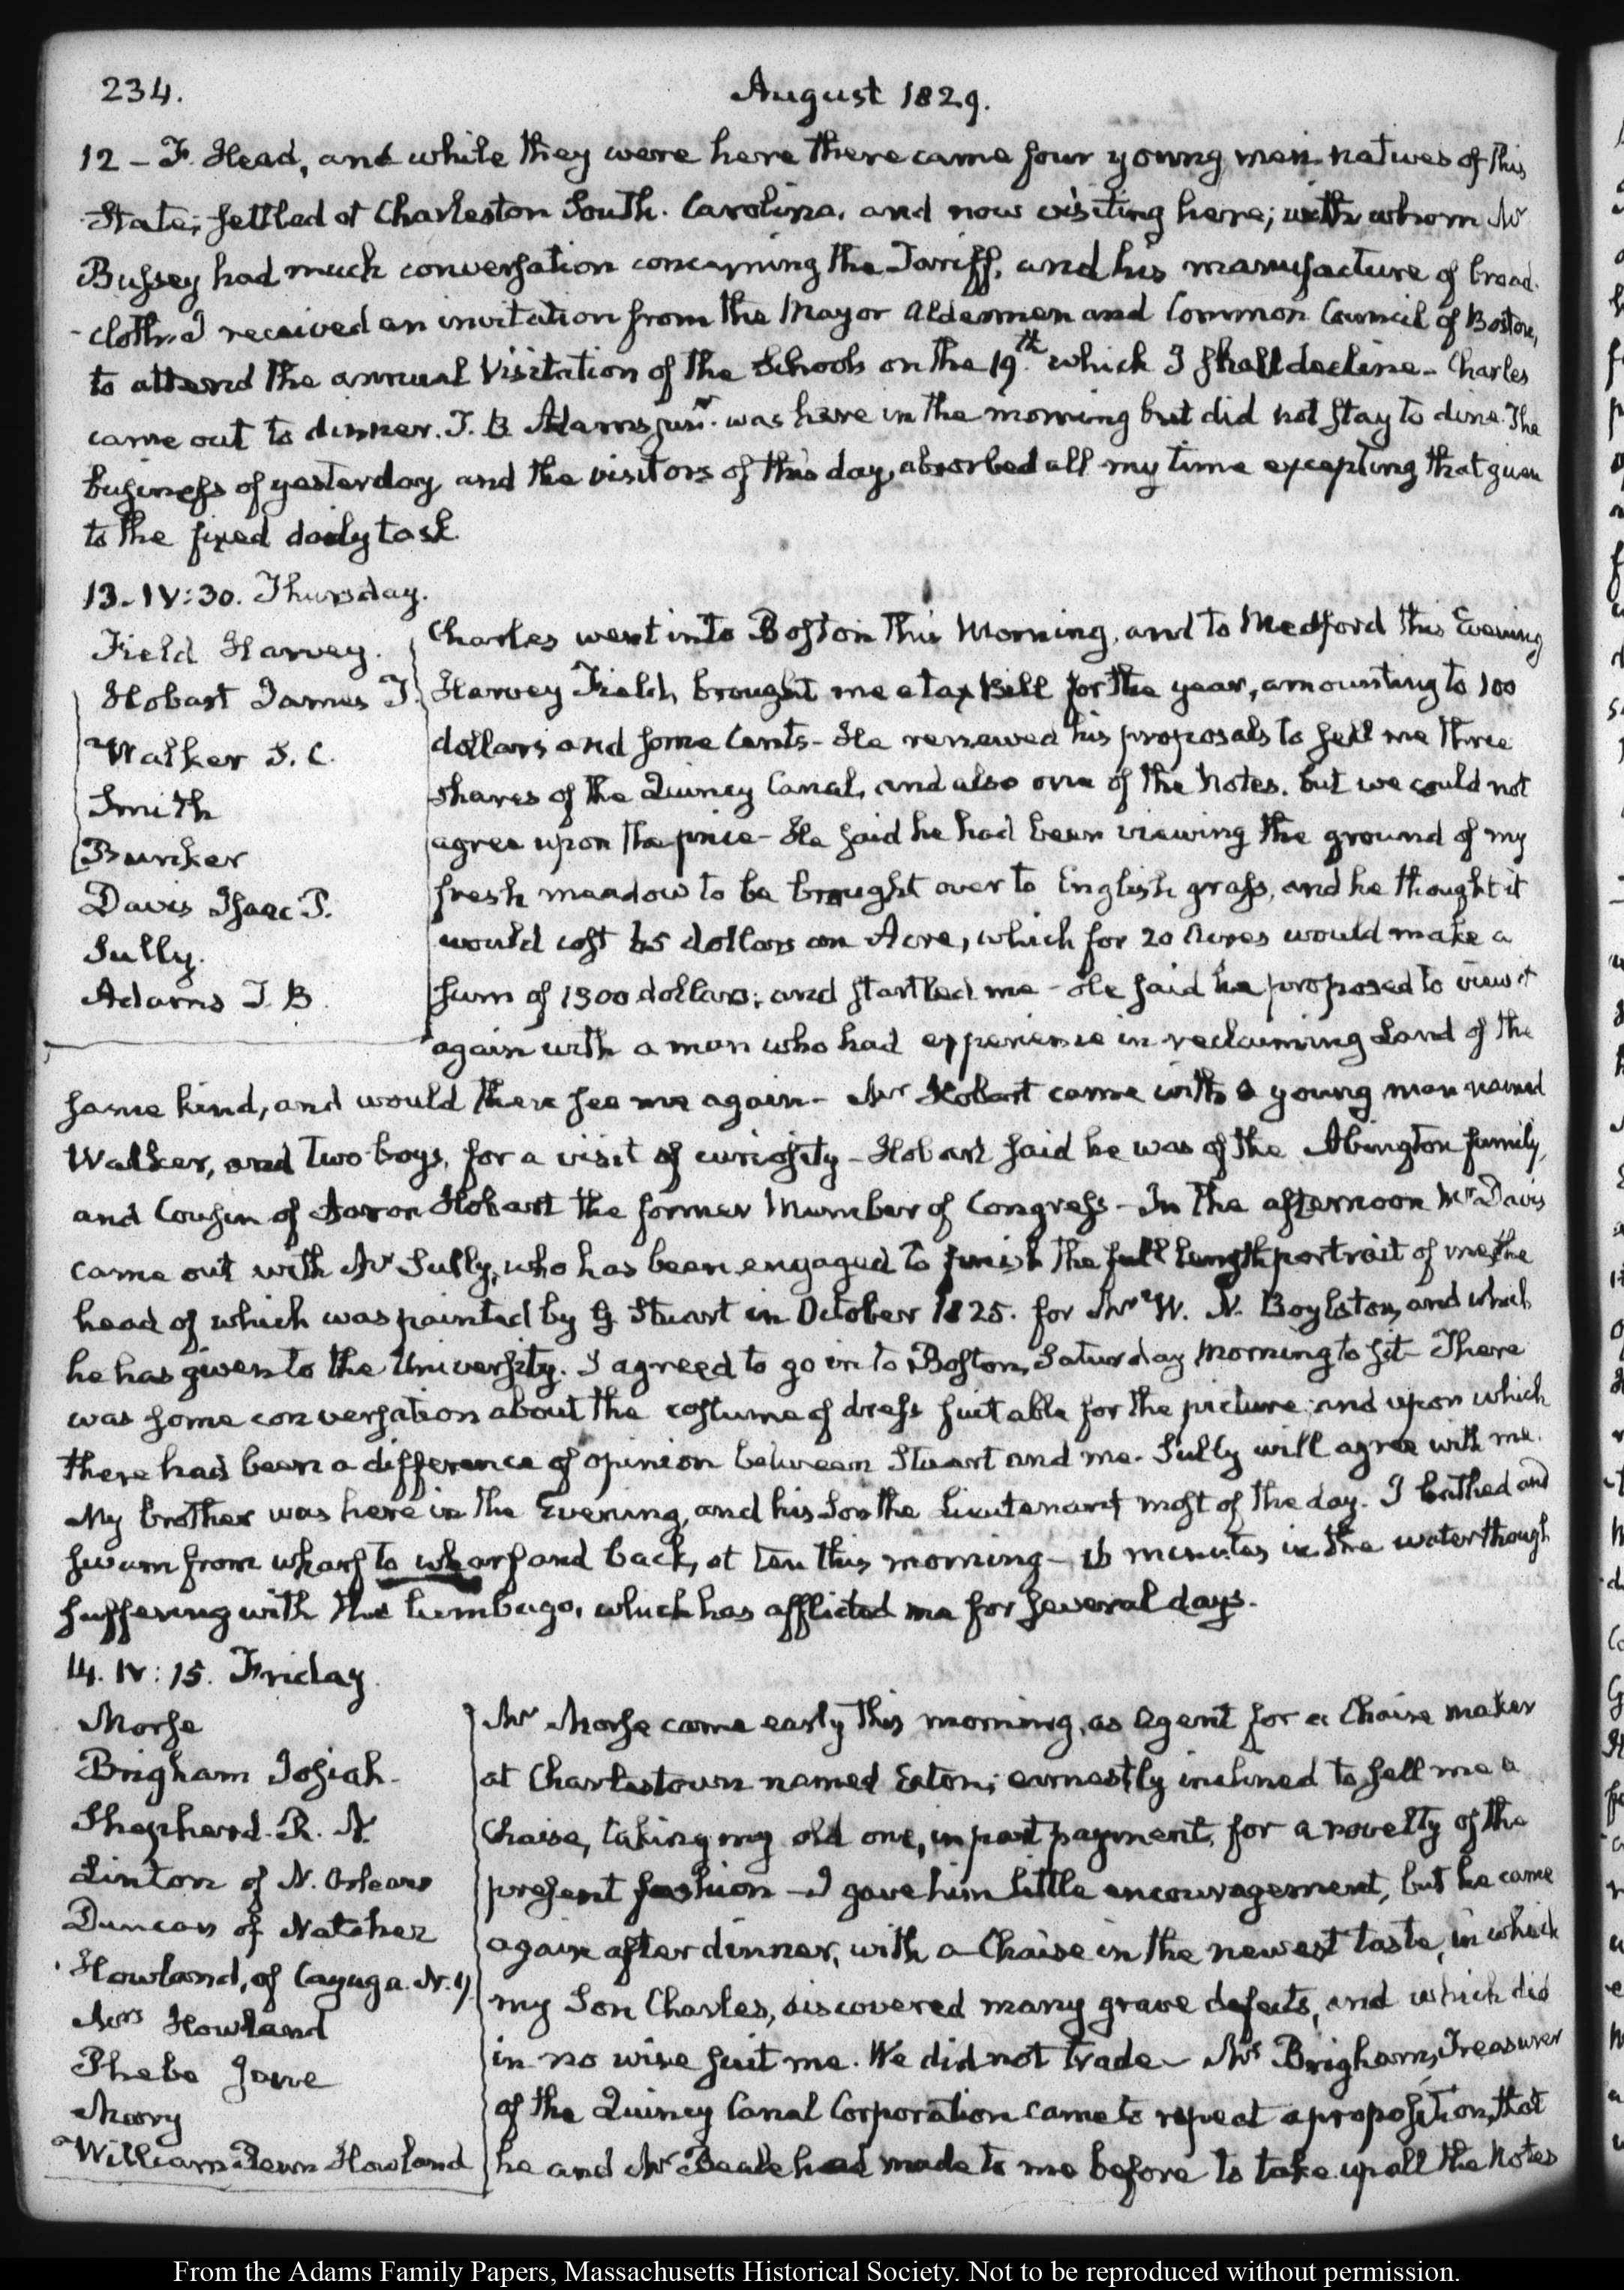 234.
August 1829.
12 - F. Head, and while they were here there came four young men natives of this
State; settled at Charleston South. Carolina, and now visiting here; with whom Mr
Bussey had much conversation concerning the Tariff, and his manufacture of broad-
-cloth. I received an invitation from the Mayor Aldermen and Common Council of Boston,
to attend the annual Visitation of the Schools on the 19th. which I shall decline - Charles
came out to dinner. T. B. Adams junr. was here in the morning but did not stay to dine. The
business of yesterday and the visitors of this day, absorbed all my time excepting that given
to the fixed daily task.
13. IV:30. Thursday.
Field Harvey.
Hobart James T.
Walker S. C.
Smith
Bunker
Davis Isaac P.
Sully.
Adams T. B.
Charles went into Boston this Morning, and to Medford this Evening
Harvey Field, brought me a tax Bill for the year, amounting to 100
dollars and some Cents - He renewed his proposals to sell me three
shares of the Quincy Canal, and also one of the Notes, but we could not
agree upon the price - He said he had been viewing the ground of my
fresh meadow to be brought over to English grass, and he thought it
would cost 65 dollars an Acre, which for 20 Acres would make a
sum of 1300 dollars; and startled me - He said he proposed to view it
again with a man who had experience in reclaiming Land of the
same kind, and would then see me again - Mr Hobart came with a young man named
Walker, and two boys, for a visit of curiosity - Hobart said he was of the Abington family,
and Cousin of Aaron Hobart the former Member of Congress - In the afternoon Mr Davis
came out with Mr Sully, who has been engaged to finish the full length portrait of me, the
head of which was painted by G. Stuart in October 1825. for Mr W. N. Boylston, and which
he has given to the University. I agreed to go in to Boston, Saturday Morning to sit - There
was some conversation about the costume of dress suitable for the picture; and upon which
there has been a difference of opinion between Stuart and me. Sully will agree with me.
My brother was here in the Evening, and his Son the Lieutenant most of the day. I bathed and
swam from wharf to wharf and back, at ten this morning - 16 minutes in the water though
suffering with the lumbago, which has afflicted me for several days.
14. IV:15. Friday.
Morse
Brigham Josiah.
Shepherd. R. N.
Linton of N. Orleans
Duncan of Natchez
Howland, of Cayuga. N.Y.
Mrs Howland
Phebe Jane
Mary
William Penn Howland
Mr Morse came early this morning, as Agent for a Chaise maker
at Charlestown named Eaton; earnestly inclined to sell me a
Chaise, taking my old one, in part payment, for a novelty of the
present fashion - I gave him little encouragement, but he came
again after dinner, with a Chaise in the newest taste, in which
my Son Charles, discovered many grave defects, and which did
in no wise suit me. We did not trade - Mr Brigham, Treasurer
of the Quincy Canal Corporation came to repeat a proposition, that
he and Mr Beale had made to me before to take up all the Notes
From the Adams Family Papers, Massachusetts Historical Society. Not to be reproduced without permission.